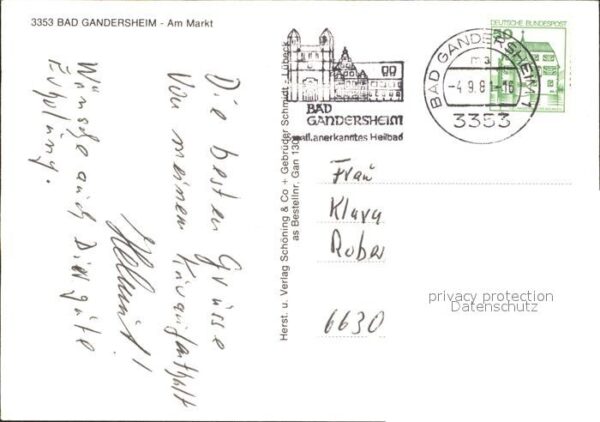 3353 BAD GANDERSHEIM - Am Markt
Die besten Grüsse
von meinem Kuraufenthalt
Wünsche auch Dir gute
Erholung.
Helmut!
Herst. u. Verlag Schöning & Co + Gebrüder Schmidt - Lübeck
as Bestellnr. Gan 130
BAD
GANDERSHEIM
anerkanntes Heilbad
BAD GANDERSHEIM 1
ma
-4.9.8 -16
3353
DEUTSCHE BUNDESPOST
50
Frau
Klara
Rober
6630
privacy protection
Datenschutz